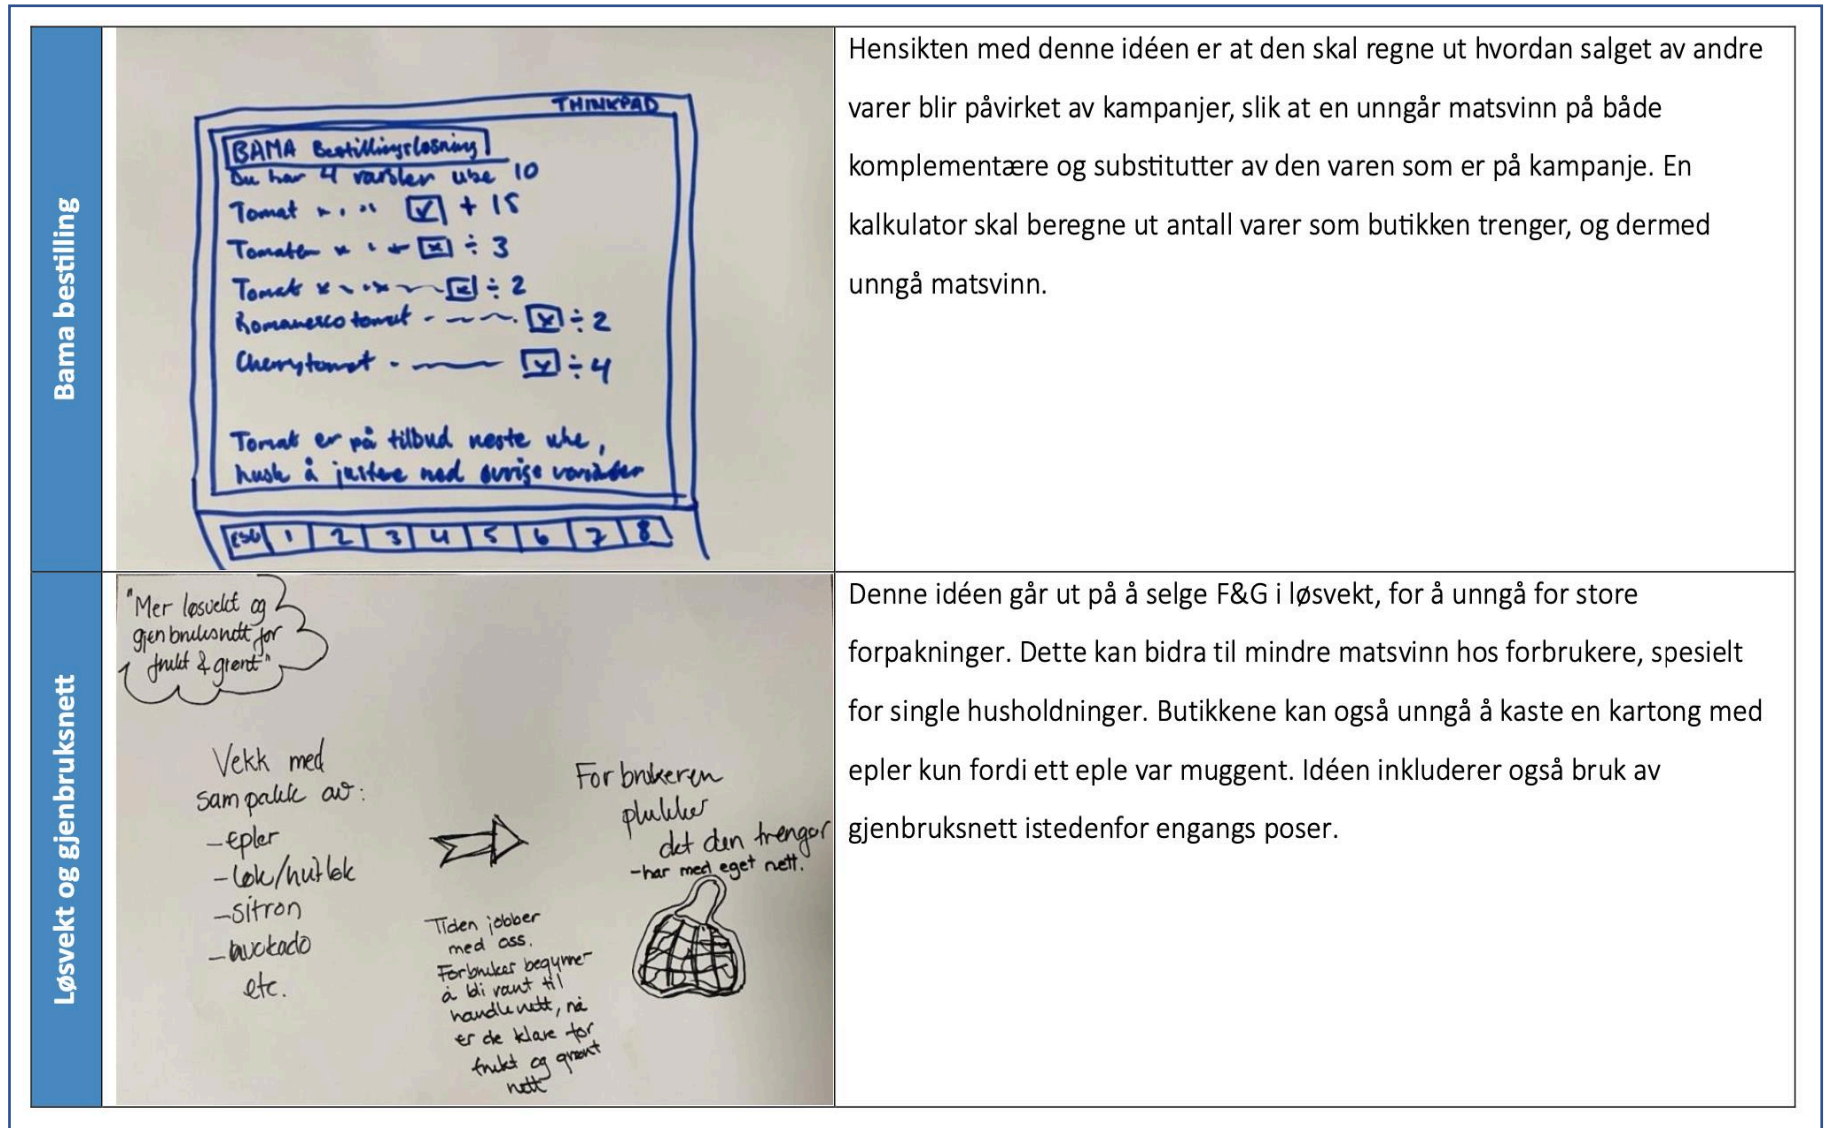 Bama bestilling
THINKPAD
BAMA Bestillingsløsning
Du har 4 varsler uke 10
Tomat + 15
Tomater ÷ 3
Tomat ÷ 2
Romanesco tomat ÷ 2
Cherrytomat ÷ 4
Tomat er på tilbud neste uke,
husk å justere ned øvrige varianter
ESC 1 2 3 4 5 6 7 8
Hensikten med denne idéen er at den skal regne ut hvordan salget av andre
varer blir påvirket av kampanjer, slik at en unngår matsvinn på både
komplementære og substitutter av den varen som er på kampanje. En
kalkulator skal beregne ut antall varer som butikken trenger, og dermed
unngå matsvinn.
Løsvekt og gjenbruksnett
"Mer løsvekt og
gjenbruksnett for
frukt & grønt"
Vekk med
sampakk av:
-Epler
-Løk/hvitløk
-sitron
-avokado
etc.
Forbrukeren
plukker
det den trenger
-har med eget nett.
Tiden jobber
med oss.
Forbruker begynner
å bli vant til
handlenett, nå
er de klare for
frukt og grønt
nett
Denne idéen går ut på å selge F&G i løsvekt, for å unngå for store
forpakninger. Dette kan bidra til mindre matsvinn hos forbrukere, spesielt
for single husholdninger. Butikkene kan også unngå å kaste en kartong med
epler kun fordi ett eple var muggent. Idéen inkluderer også bruk av
gjenbruksnett istedenfor engangs poser.